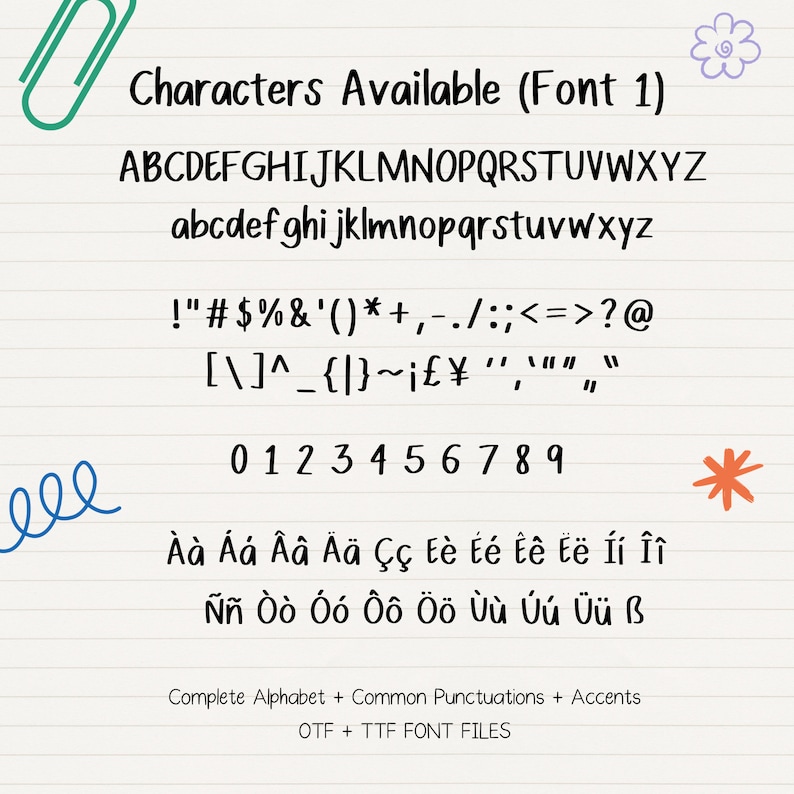 Characters Available (Font 1)
ABCDEFGHIJKLMNOPQRSTUVWXYZ
abcdefghijklmnopqrstuvwxyz
!"#$%&'()*+,-./:;<=>?@
[\]^_{|}~¡£¥ ‘’‚‛“”„‟
0 1 2 3 4 5 6 7 8 9
Àà Áá Ââ Ää Çç Èè Éé Êê Ëë Íí Îî
Ññ Òò Óó Ôô Öö Ùù Úú Üü ß
Complete Alphabet + Common Punctuations + Accents
OTF + TTF FONT FILES